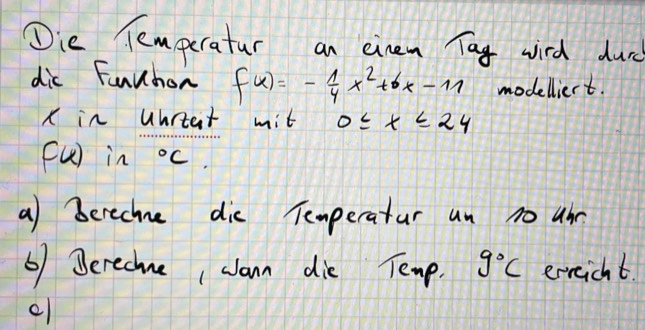 Die Temperatur an einem Tag wird durc
die Funktion f(x) = - 1/4 x² + 6x - 11 modelliert.
x in Uhrzeit mit 0 ≤ x ≤ 24
f(x) in °C.
a) Berechne die Temperatur um 10 Uhr.
b) Berechne, wann die Temp. 9°C erreicht.
c)